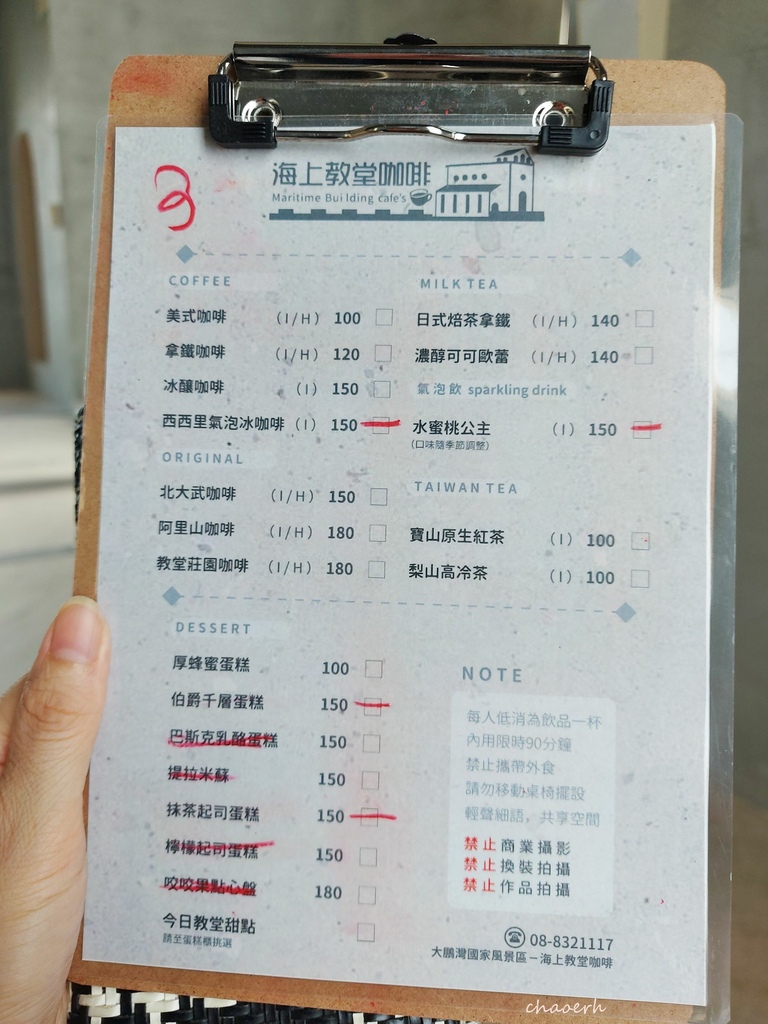 3
海上教堂咖啡
Maritime Building cafe's
COFFEE
美式咖啡 (I/H) 100
拿鐵咖啡 (I/H) 120
冰釀咖啡 (I) 150
西西里氣泡冰咖啡 (I) 150
ORIGINAL
北大武咖啡 (I/H) 150
阿里山咖啡 (I/H) 180
教堂莊園咖啡 (I/H) 180
MILK TEA
日式焙茶拿鐵 (I/H) 140
濃醇可可歐蕾 (I/H) 140
氣泡飲 sparkling drink
水蜜桃公主 (I) 150
(口味隨季節調整)
TAIWAN TEA
寶山原生紅茶 (I) 100
梨山高冷茶 (I) 100
DESSERT
厚蜂蜜蛋糕 100
伯爵千層蛋糕 150
巴斯克乳酪蛋糕 150
提拉米蘇 150
抹茶起司蛋糕 150
檸檬起司蛋糕 150
咬咬果點心盤 180
今日教堂甜點
請至蛋糕櫃挑選
NOTE
每人低消為飲品一杯
內用限時90分鐘
禁止攜帶外食
請勿移動桌椅擺設
輕聲細語，共享空間
禁止商業攝影
禁止換裝拍攝
禁止作品拍攝
08-8321117
大鵬灣國家風景區－海上教堂咖啡
chaoerh